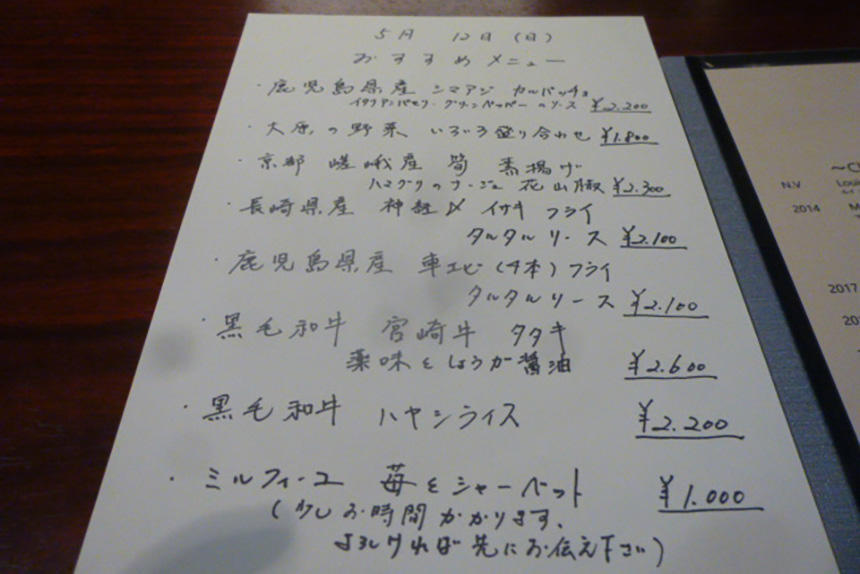 5月 12日(日)
おすすめメニュー
・鹿児島県産 シマアジ カルパッチョ
イタリアンパセリ・グリーンペッパーのソース ¥2.200
・大原の野菜 いろいろ盛り合わせ ¥1.800
・京都 嵯峨産 筍 素揚げ
ハマグリのナージュ 花山椒 ¥2.300
・長崎県産 神経〆 イサキ フライ
タルタルソース ¥2.100
・鹿児島県産 車エビ(4本)フライ
タルタルソース ¥2.100
・黒毛和牛 宮崎牛 タタキ
薬味としょうが醤油 ¥2.600
・黒毛和牛 ハヤシライス ¥2.200
・ミルフィーユ 苺とシャーベット ¥1.000
(少しお時間かかります、
よろしければ先にお伝え下さい)
N.V
2014
2017